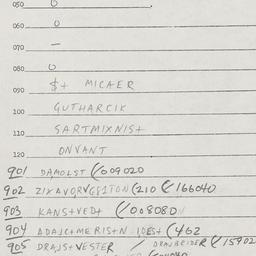 050 0
060 0
070 —
080 0
090 $+ MICAER
100 GUTHARCIK
110 SARTMIXNIS+
120 ONVANT
901 DAMOLST (/009020
902 (210 (/166040
903 KANS+VED+ (/008080
904 (462
905 DRAJS+VESTER / DRAUBRIDER (/15902